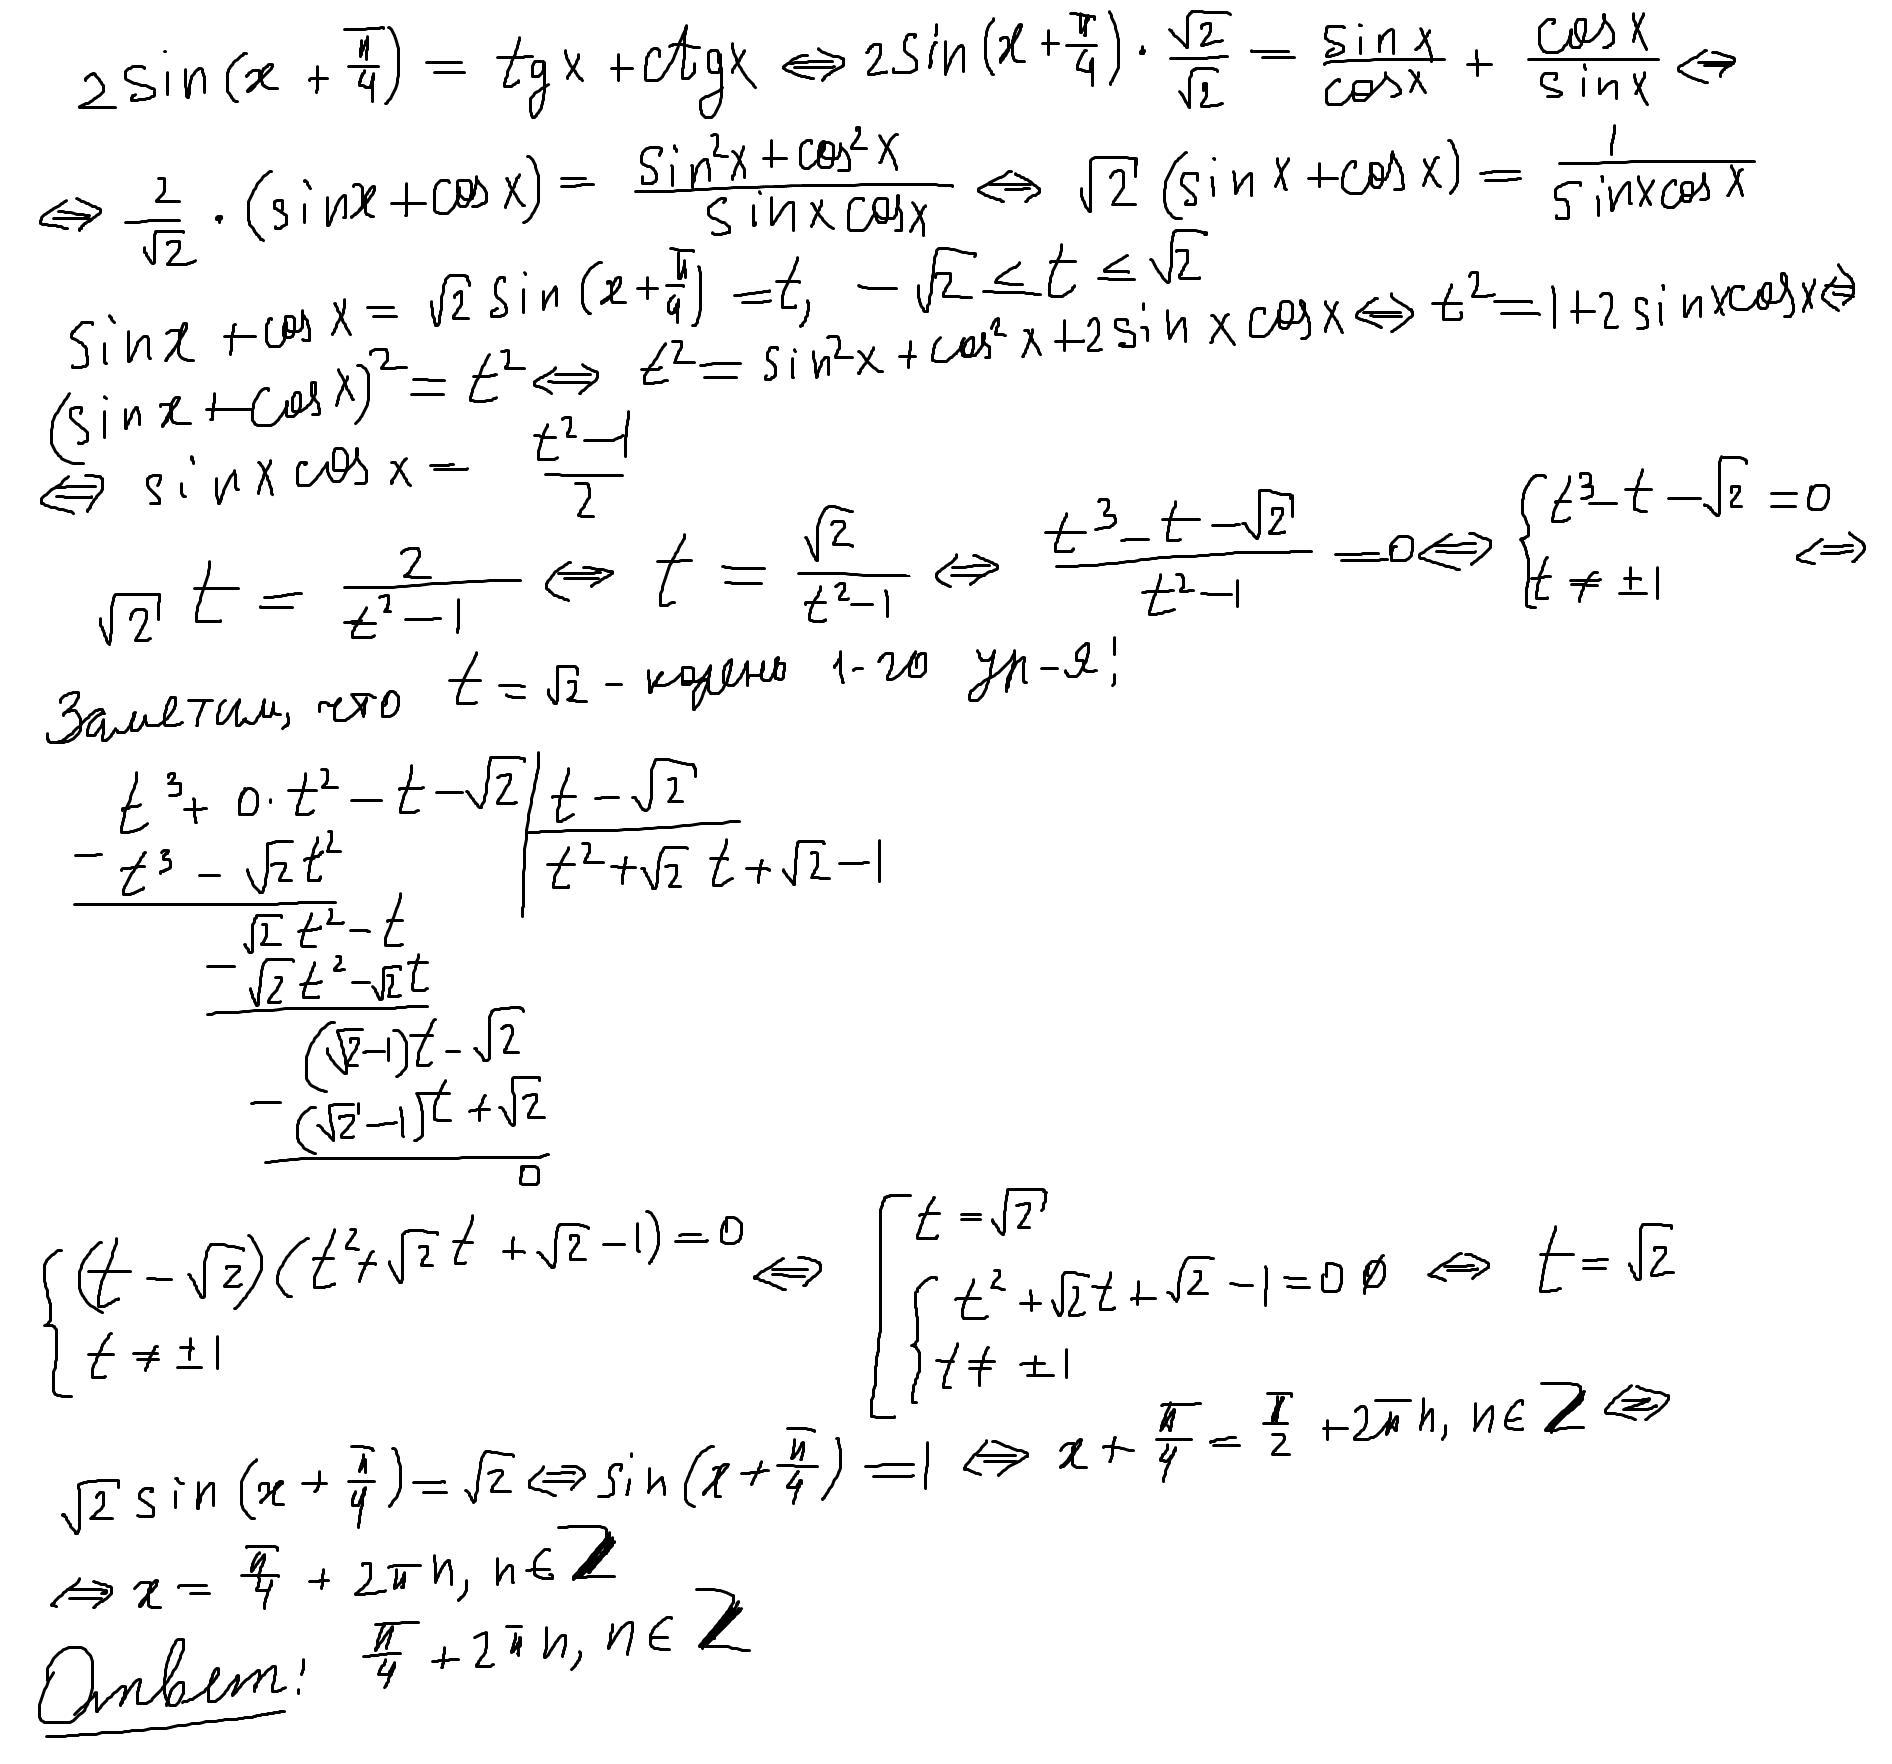 2sin(x + π/4) = tgx + ctgx ⇔ 2sin(x + π/4) · √2/√2 = sinx/cosx + cosx/sinx ⇔
⇔ 2/√2 · (sinx + cosx) = (sin²x + cos²x)/(sinx cosx) ⇔ √2 (sinx + cosx) = 1/(sinxcosx)
sinx + cosx = √2 sin(x + π/4) = t, -√2 ≤ t ≤ √2
(sinx + cosx)² = t² ⇔ t² = sin²x + cos²x + 2sinx cosx ⇔ t² = 1 + 2sinxcosx ⇔
⇔ sinx cosx = (t² - 1)/2
√2 t = 2/(t² - 1) ⇔ t = √2/(t² - 1) ⇔ (t³ - t - √2)/(t² - 1) = 0 ⇔ { t³ - t - √2 = 0 ; t ≠ ±1 ⇔
Заметим, что t = √2 - корень 1-го ур-я!
t³ + 0·t² - t - √2 | t - √2
- t³ - √2t² | t² + √2 t + √2 - 1
√2 t² - t
- √2 t² - √2t
(√2 - 1)t - √2
- (√2 - 1)t + √2
0
{ (t - √2)(t² + √2 t + √2 - 1) = 0 ; t ≠ ±1 ⇔ [ t = √2 ; { t² + √2t + √2 - 1 = 0 ∅ ; t ≠ ±1 ⇔ t = √2
√2 sin(x + π/4) = √2 ⇔ sin(x + π/4) = 1 ⇔ x + π/4 = π/2 + 2πn, n∈Z ⇔
⇔ x = π/4 + 2πn, n∈Z
Ответ: π/4 + 2πn, n∈Z